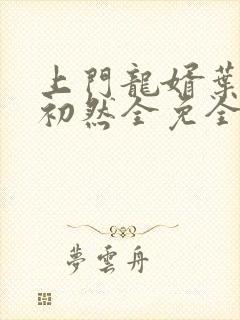 上門龍婿葉
初然全免全
夢雲舟